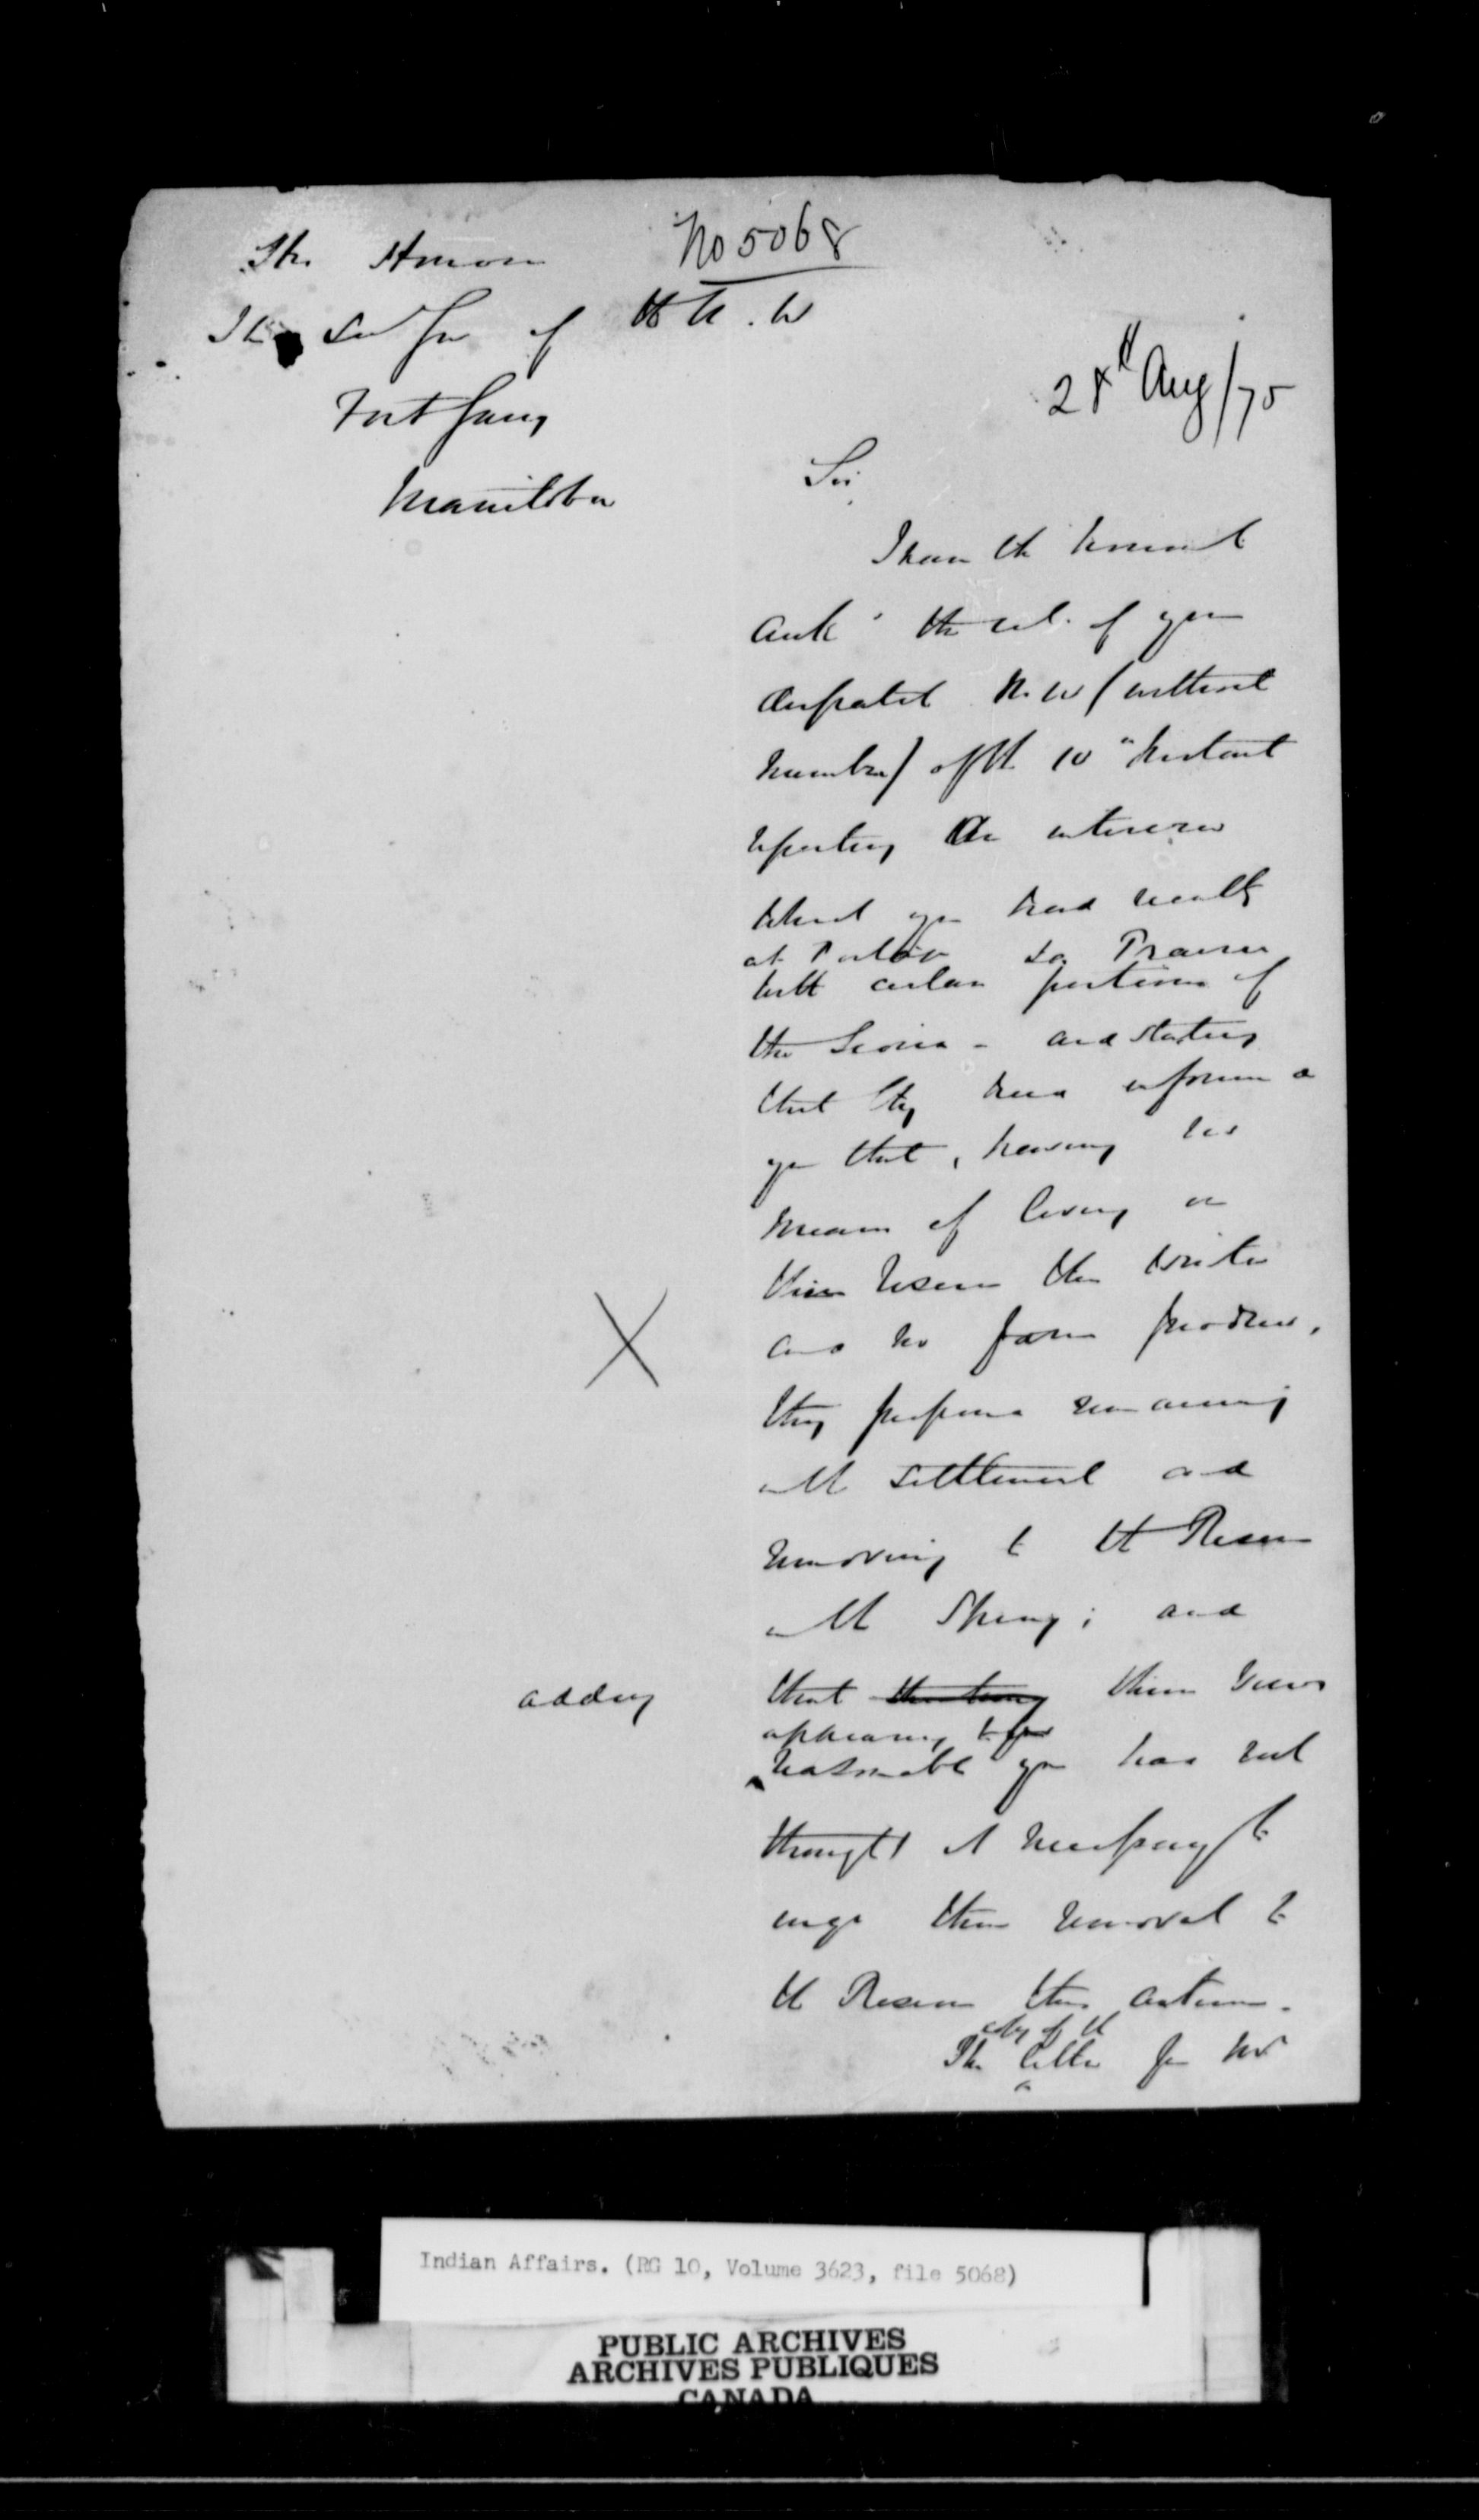 No 5068
The Honor
The Lt Gov of the N. W
Fort Garry
Manitoba
28th Aug/75
Sir,
I have the honor to
ack the rect. of your
despatch N. W (without
number) of the 10" Instant
reporting the interview
which you had recently
at Portage La Prairie
with certain portions of
the Sioux - and stating
that they had informed
you that, having no
means of living on
their Reserve the winter
and no farm produce,
they proposed remaining
in the settlement and
removing to the Reserve
in the Spring; and
adding
that their views
appearing to you
reasonable you had not
thought it necessary to
urge their removal to
the Reserve this autumn.
copy of the
The letter fr Mr
Indian Affairs. (RG 10, Volume 3623, file 5068)
PUBLIC ARCHIVES
ARCHIVES PUBLIQUES
CANADA